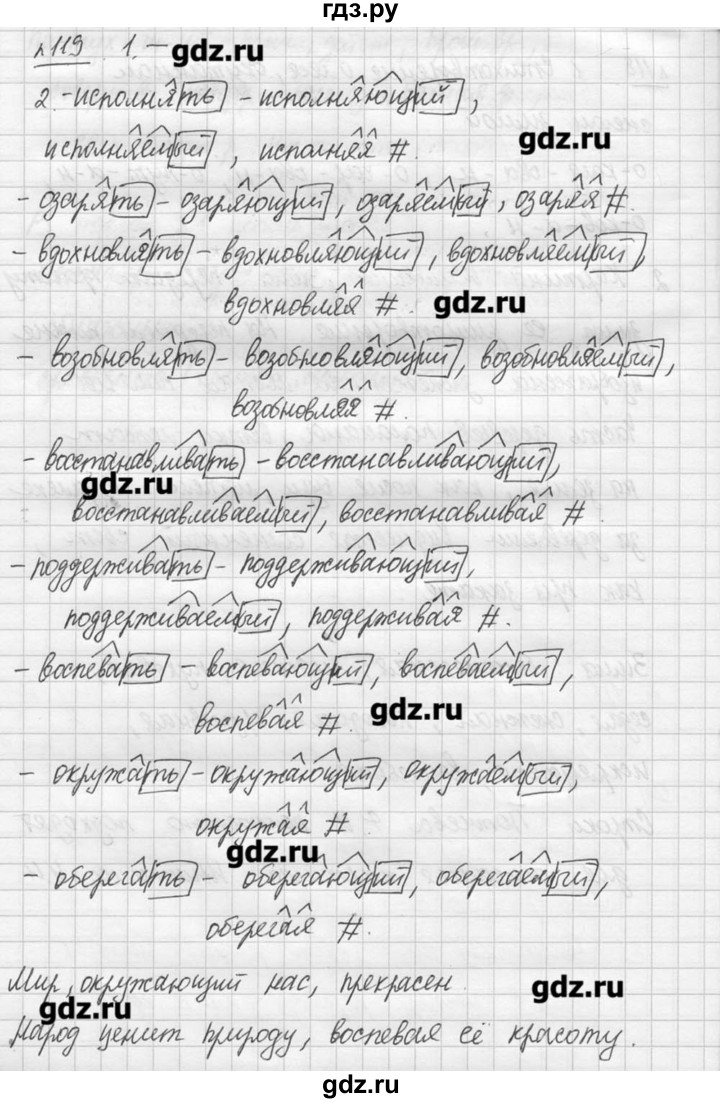 гдз.ру
№119 1. — gdz.ru
2. - исполнять - исполняющий,
исполняемый, исполняя #. gdz.ru
- озарять - озаряющий, озаряемый, озаряя #.
- вдохновлять - вдохновляющий, вдохновляемый,
вдохновляя #. gdz.ru
- возобновлять - возобновляющий, возобновляемый,
возобновляя #.
- восстанавливать - восстанавливающий,
gdz.ru
восстанавливаемый, восстанавливая #.
- поддерживать - поддерживающий,
поддерживаемый, поддерживая #.
- воспевать - воспевающий, воспеваемый,
воспевая #. gdz.ru
- окружать - окружающий, окружаемый,
окружая #.
gdz.ru
- оберегать - оберегающий, оберегаемый,
оберегая #.
Мир, окружающий нас, прекрасен. gdz.ru
gdz.ru
Народ ценит природу, воспевая её красоту.
gdz.ru